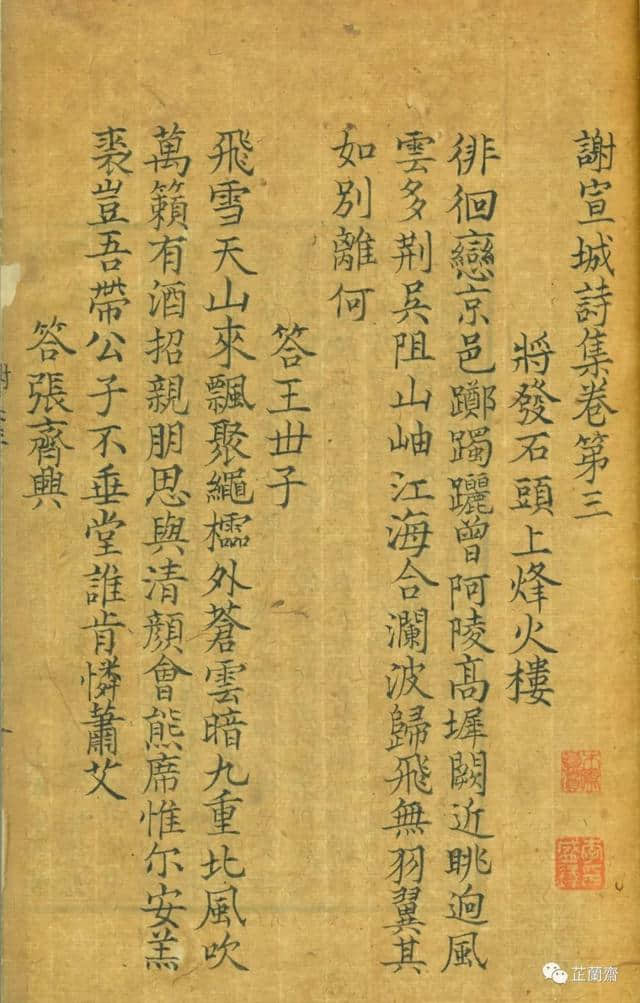 謝宣城詩集卷第三
將發石頭上烽火樓
徘徊戀京邑躑躅躧曾阿陵高墀闕近眺迥風
雲多荆吳阻山岫江海合瀾波歸飛無羽翼其
如別離何
答王世子
飛雪天山來飄聚繩檽外蒼雲暗九重北風吹
萬籟有酒招親朋思與清顏會熊席惟尔安羔
裘豈吾帶公子不垂堂誰肯憐蕭艾
答張齊興
芷蘭齋